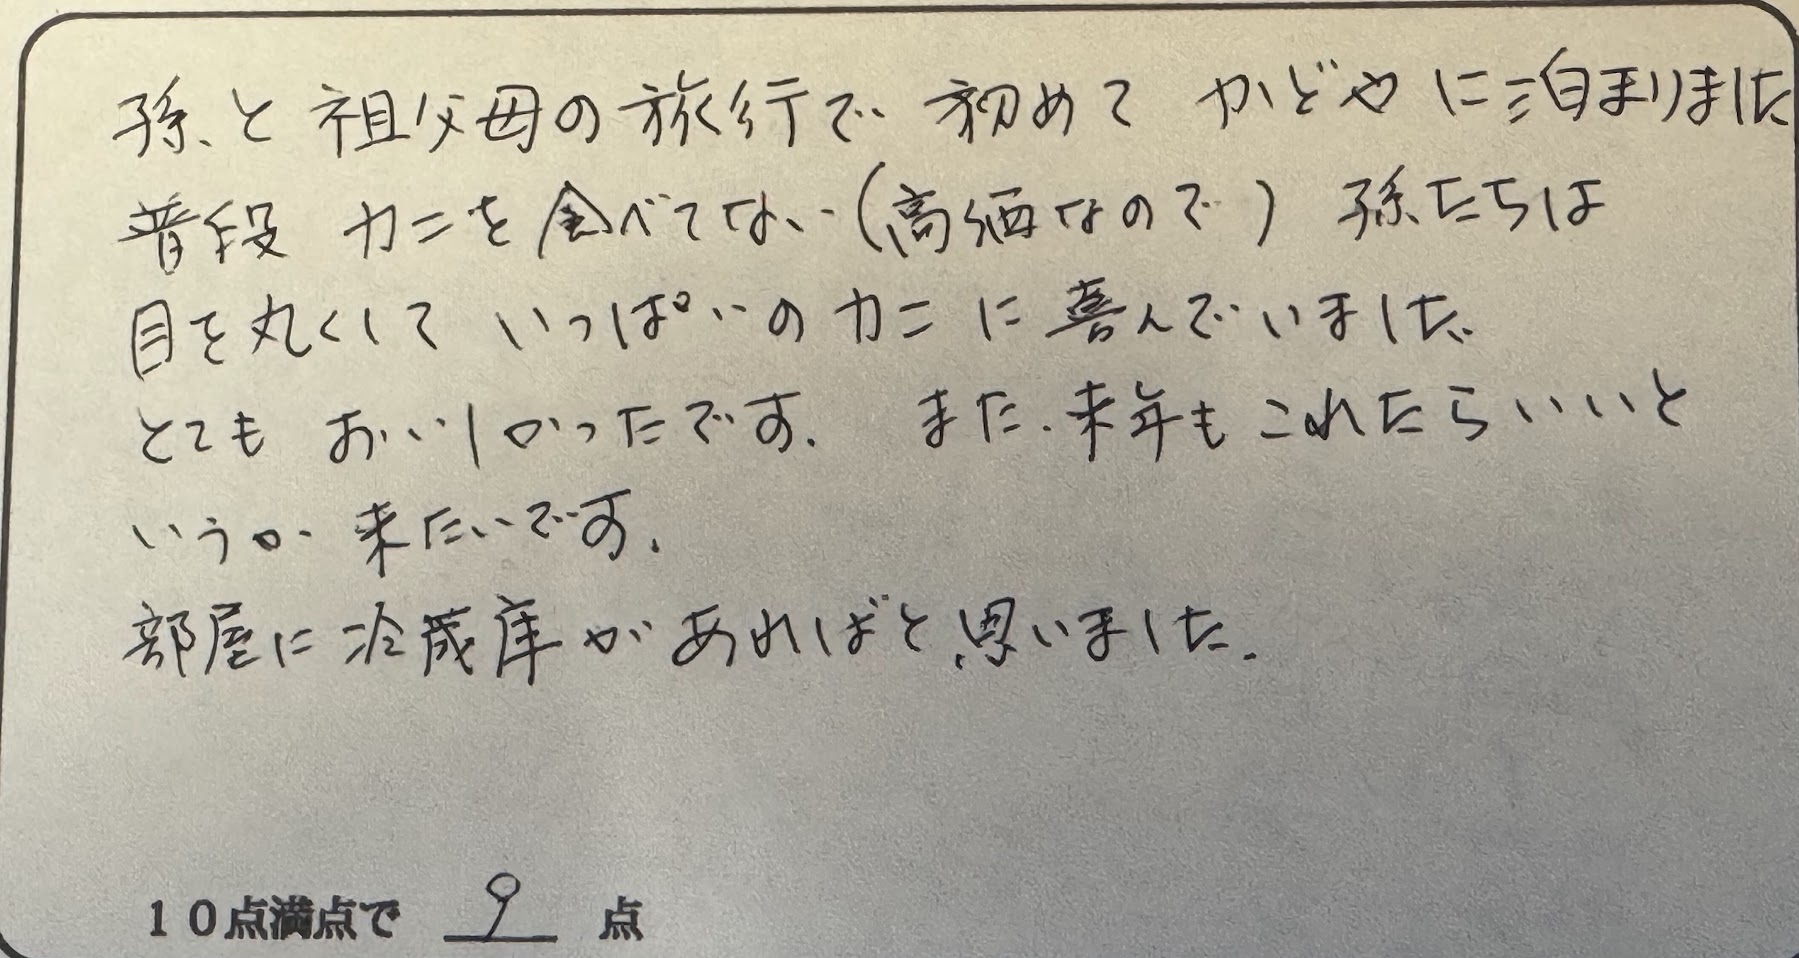 孫と祖父母の旅行で 初めて かどや に泊まりました
普段 カニを食べてない(高価なので) 孫たちは
目を丸くして いっぱいのカニに喜んでいました
とても おいしかったです. また.来年もこれたらいいと
いうか 来たいです.
部屋に冷蔵庫があればと思いました.
10点満点で 9 点